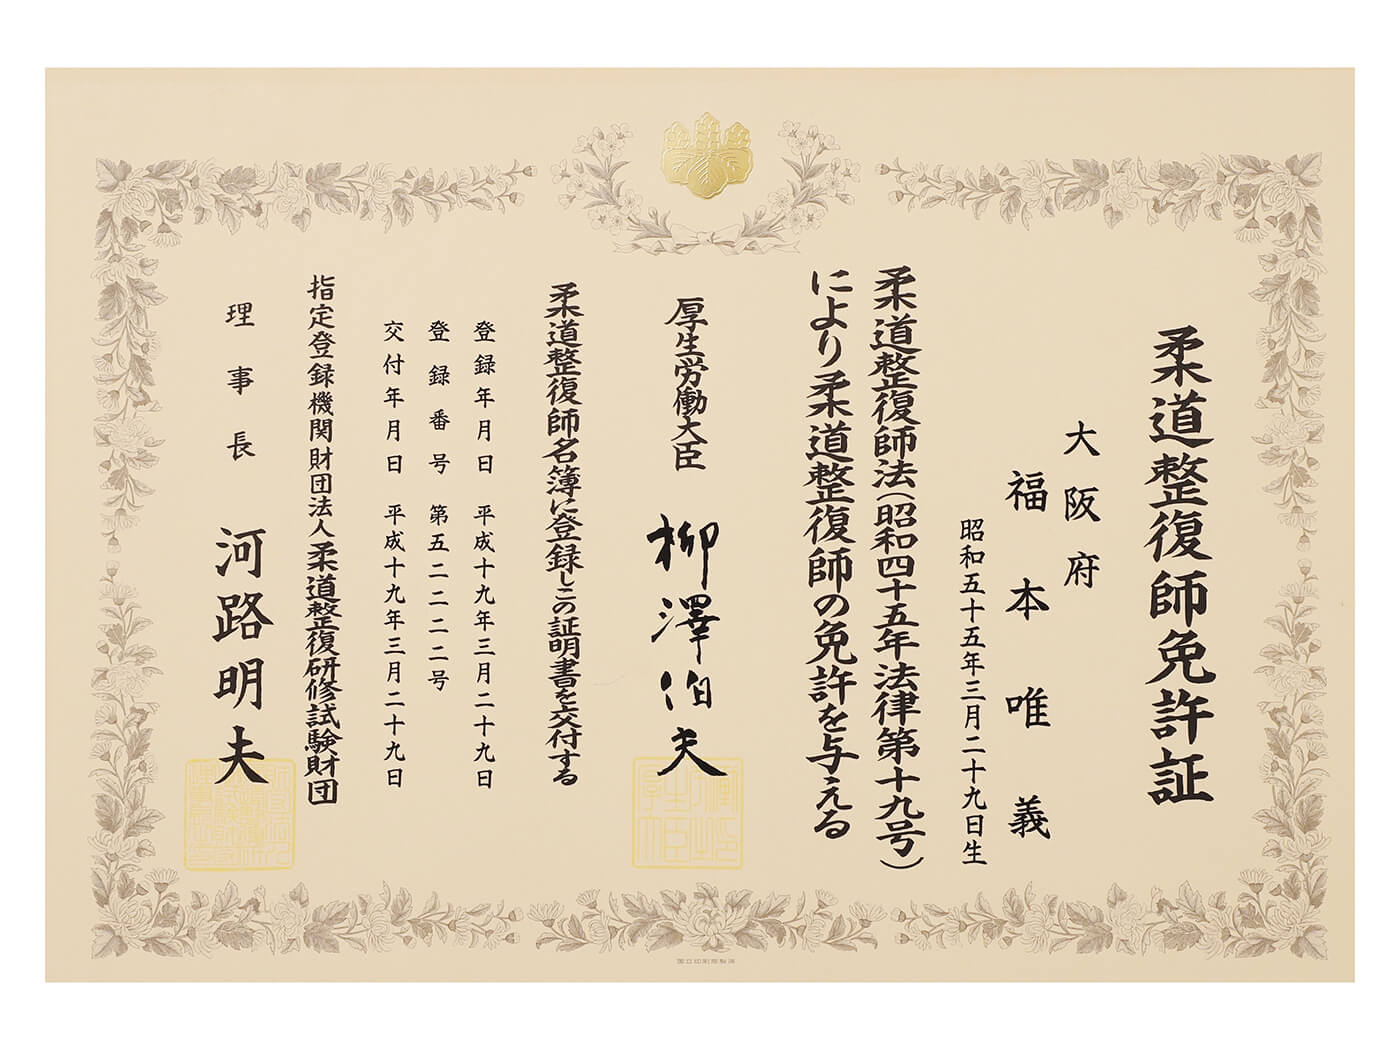 柔道整復師免許証
大阪府
福本唯義
昭和五十五年三月二十九日生
柔道整復師法（昭和四十五年法律第十九号）
により柔道整復師の免許を与える
厚生労働大臣 柳澤伯夫
柔道整復師名簿に登録しこの証明書を交付する
登録年月日 平成十九年三月二十九日
登録番号 第五二二二二号
交付年月日 平成十九年三月二十九日
指定登録機関財団法人柔道整復研修試験財団
理事長 河路明夫
国立印刷局製造